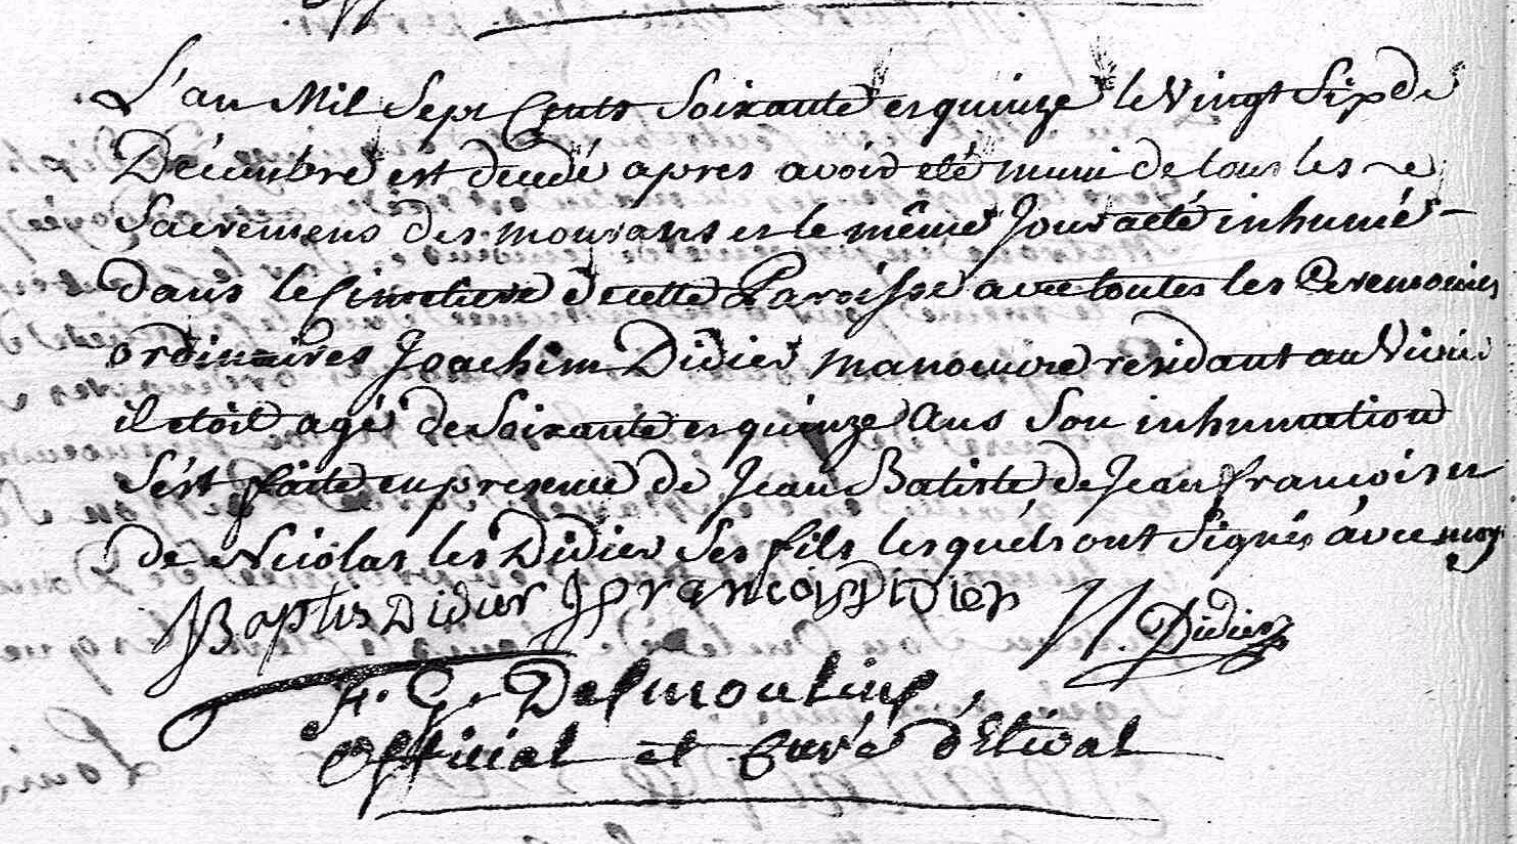 L'an Mil Sept Cents Soixante et quinze le Vingt Six de
Décembre est decedé apres avoir eté muni de tous les
Sacremens des mourans et le même Jour a eté inhumé
dans le Cimetiere de cette Paroisse avec toutes les Ceremonies
ordinaires Joachim Didier manouvre residant au
il etoit agé de Soixante et quinze Ans Son inhumation
s'est faite en presence de Jean Batiste de Jean françois et
de Nicolas les Didier Ses fils lesquels ont Signés avec moy
JBaptis Didier J francois Didier N. Didier
F. G. Desmoulins,
Official et Curé d'Etival